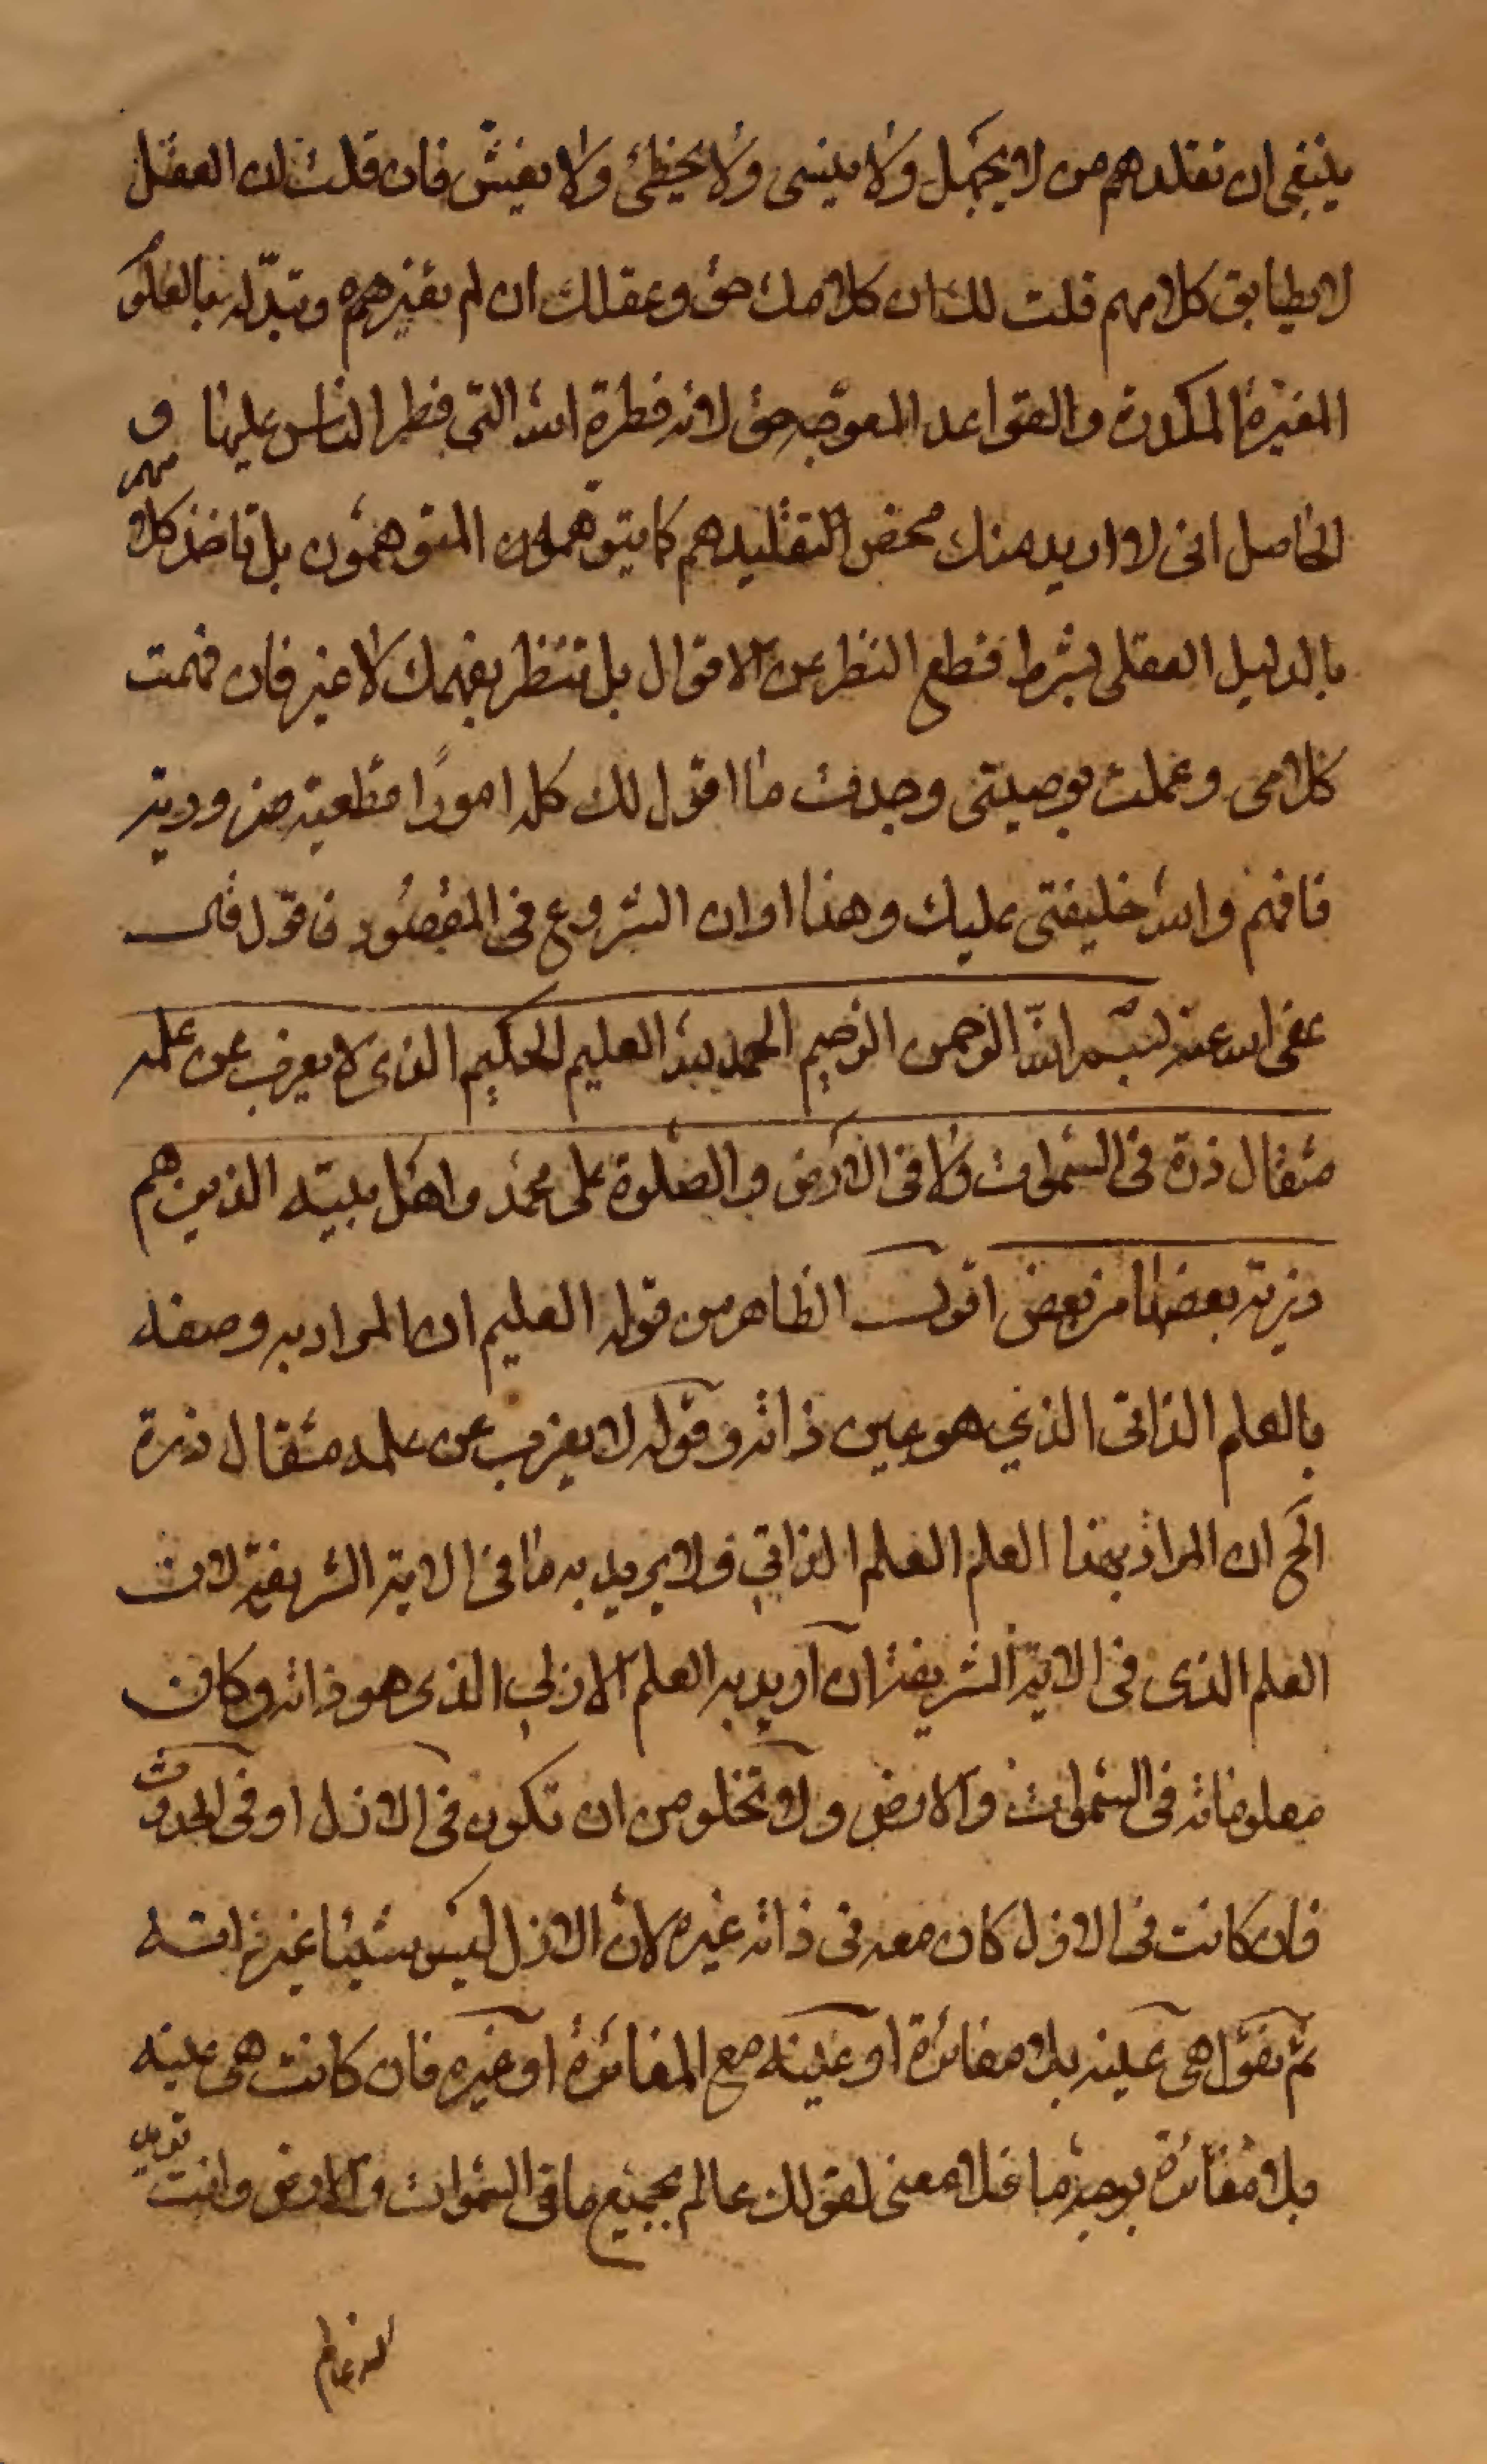 ينبغى ان تقلدهم من لا يجهل ولا ينسى ولا يخطئ ولا يغش فان قلت ان العقل
لا يطابق كلامهم قلت لك ان كلامك حق وعقلك ان لم تغيرهم وتبدله بالعلوم
المغيرة المكدرة والقواعد المعوجه حق لانه فطرة الله التى فطر الناس عليها و
الحاصل انى لا اريد منك محض التقليد هم كما يتوهمون المتوهمون بل تاخذ كلامهم
بالدليل العقلى بشرط قطع النظر عن الاقوال بل تنظر بفهمك لا غير فان فهمت
كلامى وعملت بوصيتى وجدت ما اقول لك كله امورًا قطعية ضرورية
فافهم والله خليفتى عليك وهذا اوان الشروع فى المقصود فاقول قال
عفى الله عنه بسم الله الرحمن الرحيم الحمد لله العليم الحكيم الذى لا يعزب عن علمه
مثقال ذرة فى السموات ولا فى الارض والصلوة على محمد واهل بيته الذين هم
ذرية بعضها من بعض اقول الظاهر من قوله العليم ان المراد به وصفه
بالعلم الذاتى الذي هو عين ذاته وقوله لا يعزب عن علمه مثقال ذرة
الخ ان المراد بهذا العلم العلم الذاتي ولا يريد به ما فى الاية الشريفة لان
العلم الذى فى الاية الشريفة ان اريد به العلم الازلي الذى هو ذاته وكان
معلوماته فى السموات والارض ولا تخلو من ان تكون فى الازل او فى الحدوث
فان كانت فى الازل كان معه فى ذاته غيره لان الازل ليس شيئا غير ذاته
ثم نقول هى عينه بلا مغائرة او عينه مع المغائرة او غيره فان كانت هى عينه
بلا مغائرة بوجه ما فلا معنى لقولك عالم بجميع ما فى السموات والارض وانت تريد
انه عالم